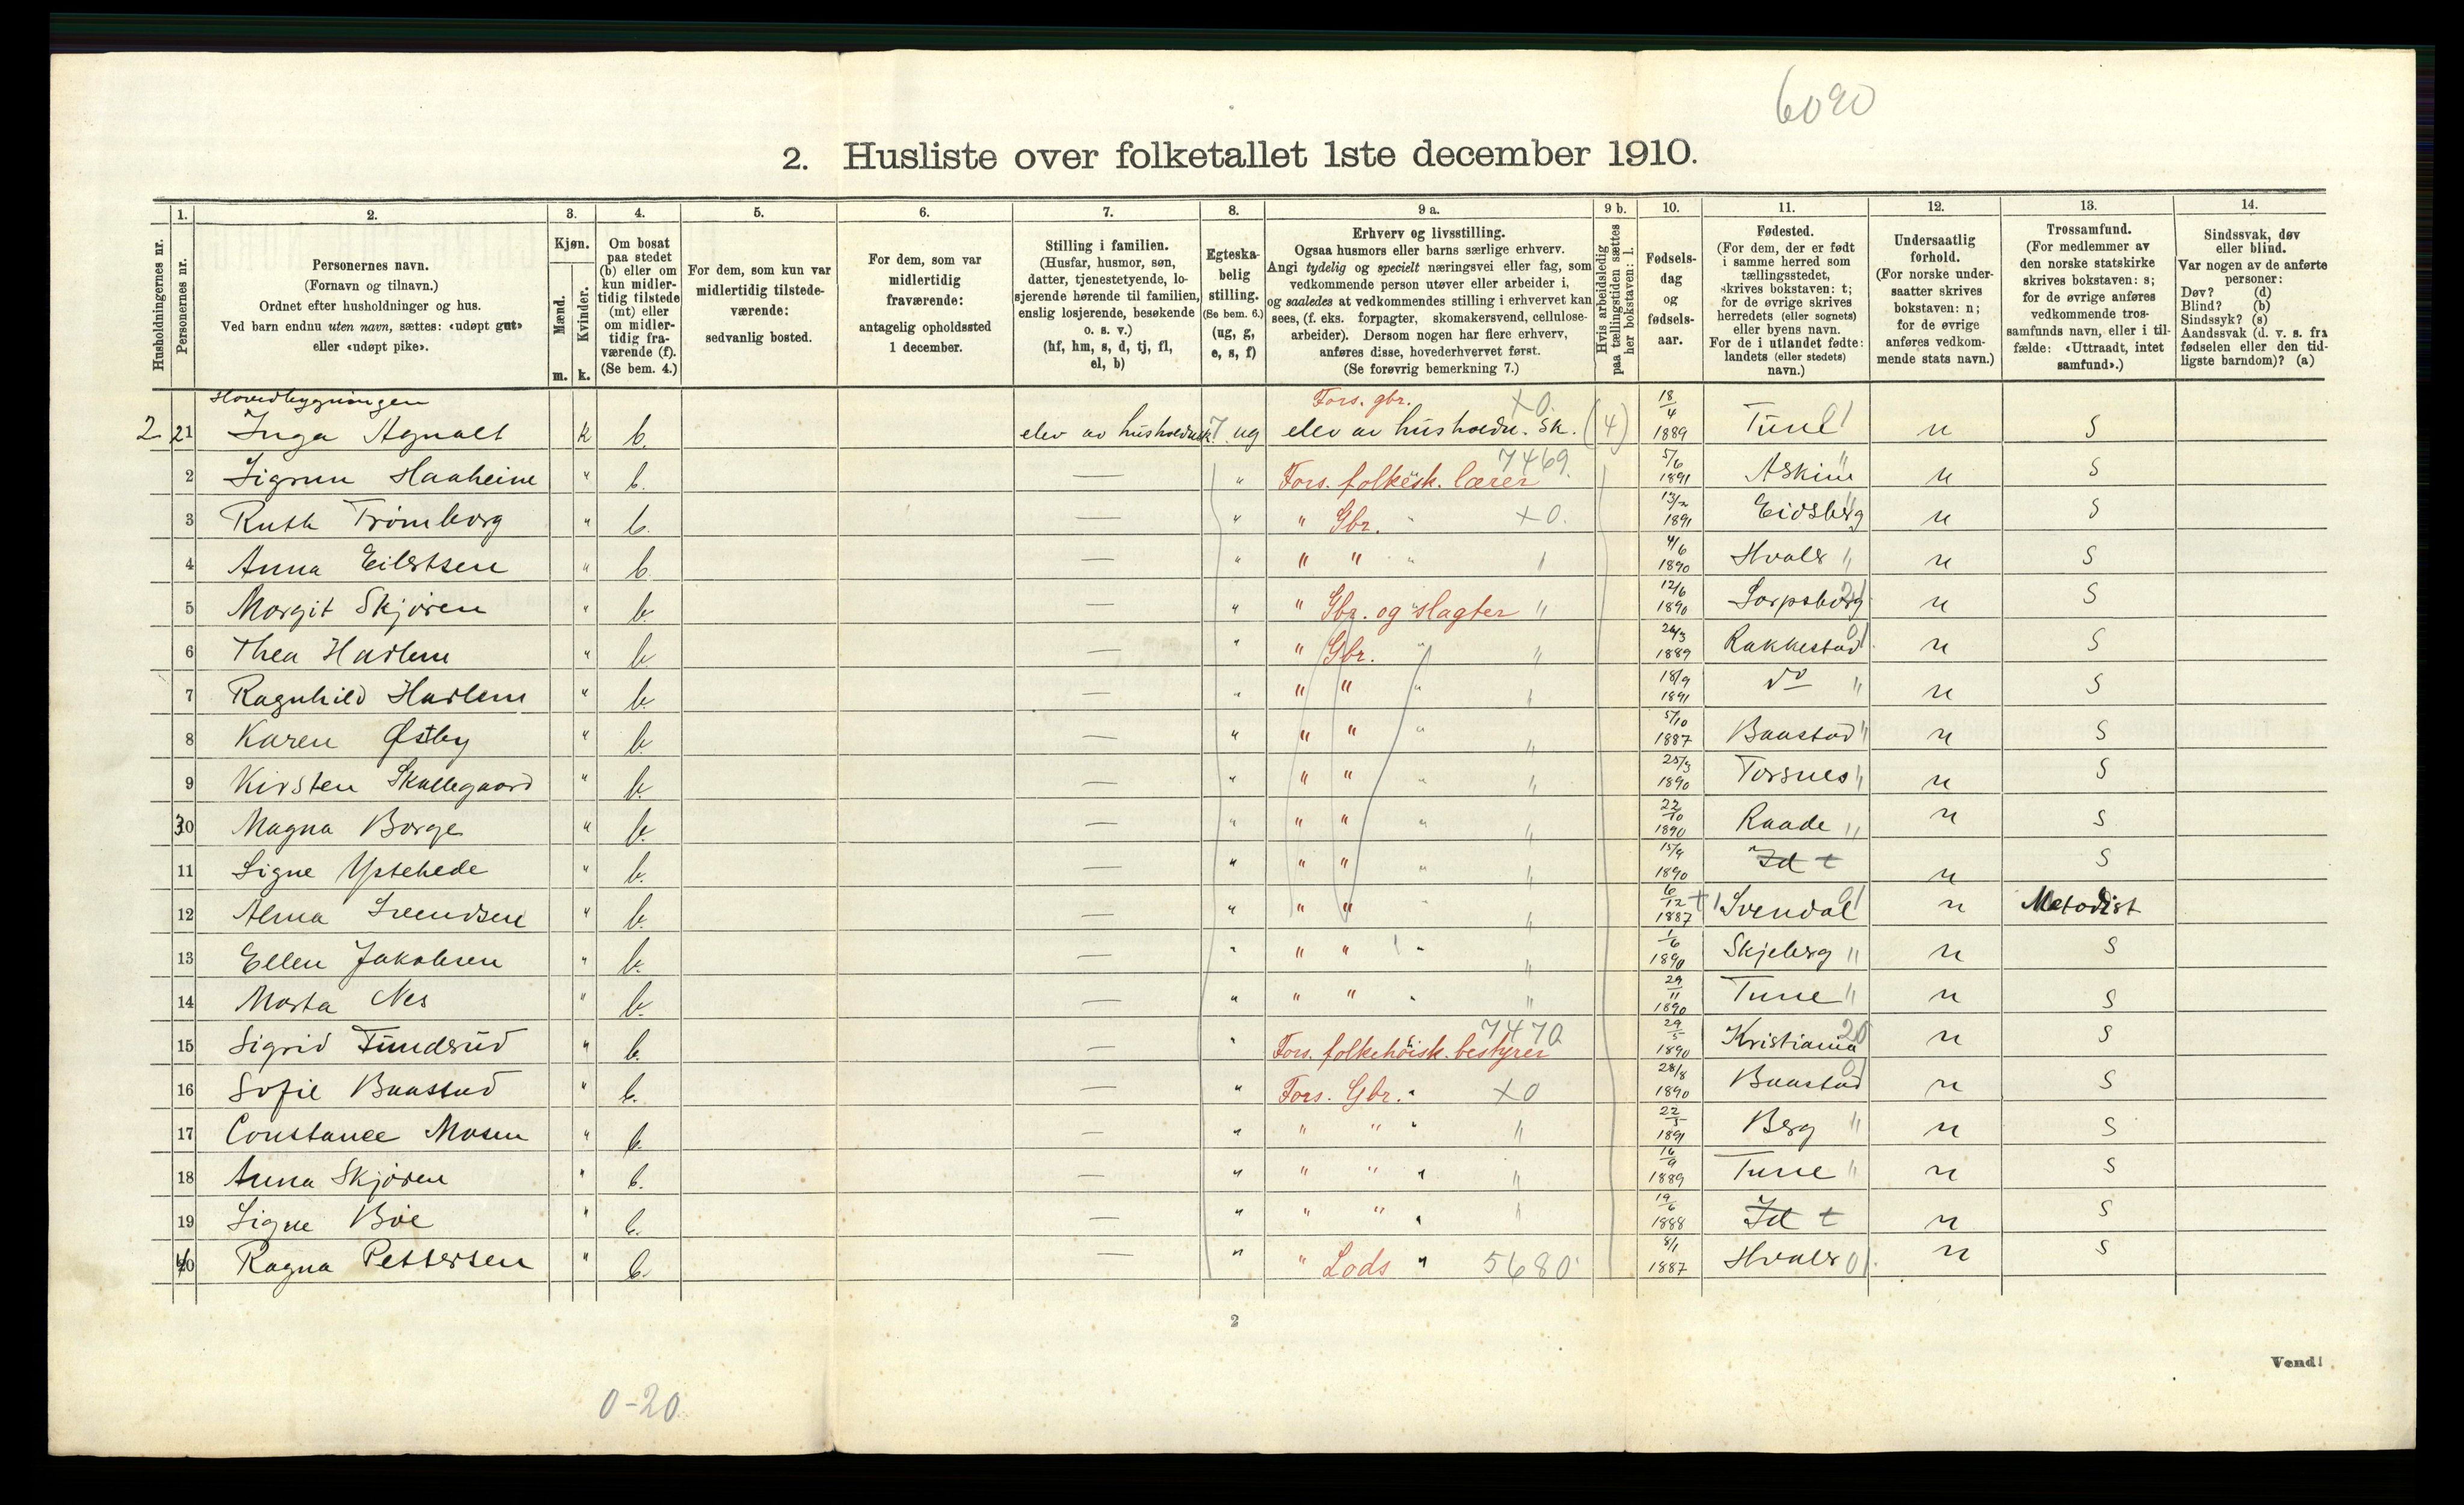 6090
2. Husliste over folketallet 1ste december 1910.
Husholdningernes nr.
1.
Personernes nr.
2.
Personernes navn.
(Fornavn og tilnavn.)
Ordnet efter husholdninger og hus.
Ved barn endnu uten navn, sættes: «udøpt gut»
eller «udøpt pike».
3.
Kjøn.
Mænd.
Kvinder.
m. k.
4.
Om bosat
paa stedet
(b) eller om
kun midler-
tidig tilstede
(mt) eller
om midler-
tidig fra-
værende (f).
(Se bem. 4.)
5.
For dem, som kun var
midlertidig tilstede-
værende:
sedvanlig bosted.
6.
For dem, som var
midlertidig
fraværende:
antagelig opholdssted
1 december.
7.
Stilling i familien.
(Husfar, husmor, søn,
datter, tjenestetyende, lo-
sjerende hørende til familien,
enslig losjerende, besøkende
o. s. v.)
(hf, hm, s, d, tj, fl,
el, b)
8.
Egteska-
belig
stilling.
(Se bem. 6.)
(ug, g,
e, s, f)
9 a.
Erhverv og livsstilling.
Ogsaa husmors eller barns særlige erhverv.
Angi tydelig og specielt næringsvei eller fag, som
vedkommende person utøver eller arbeider i,
og saaledes at vedkommendes stilling i erhvervet kan
sees, (f. eks. forpagter, skomakersvend, cellulose-
arbeider). Dersom nogen har flere erhverv,
anføres disse, hovederhvervet først.
(Se forøvrig bemerkning 7.)
9 b.
Hvis arbeidsledig
paa tællingstiden sættes
her bokstaven: l.
10.
Fødsels-
dag
og
fødsels-
aar.
11.
Fødested.
(For dem, der er født
i samme herred som
tællingsstedet,
skrives bokstaven: t;
for de øvrige skrives
herredets (eller sognets)
eller byens navn.
For de i utlandet fødte:
landets (eller stedets)
navn.)
12.
Undersaatlig
forhold.
(For norske under-
saatter skrives
bokstaven: n;
for de øvrige
anføres vedkom-
mende stats navn.)
13.
Trossamfund.
(For medlemmer av
den norske statskirke
skrives bokstaven: s;
for de øvrige anføres
vedkommende tros-
samfunds navn, eller i til-
fælde: «Uttraadt, intet
samfund».)
14.
Sindssvak, døv
eller blind.
Var nogen av de anførte
personer:
Døv? (d)
Blind? (b)
Sindssyk? (s)
Aandssvak (d. v. s. fra
fødselen eller den tid-
ligste barndom)? (a)
Hovedbygningen
Fors. gbr. X0.
2 21 Inga Agnalt K b. elev av husholdnsk. 7 ug elev av husholdn. sk. (4) 18/4 1889 Tune 01 n S
2 Sigrun Haaheim " b. — " Fors. folkesk. lærer 7469. 5/6 1891 Askim " n S
3 Ruth Trømborg " b. — " " Gbr. " X0. 13/2 1891 Eidsberg " n S
4 Anna Eilertsen " b. — " " " " " 4/6 1890 Hvaler " n S
5 Margit Skjøren " b. — " " Gbr. og slagter " 12/6 1890 Sarpsborg 21 n S
6 Thea Harlem " b. — " " Gbr. " " 26/3 1889 Rakkestad 01 n S
7 Ragnhild Harlem " b. — " " " " " 18/9 1891 do " n S
8 Karen Østby " b. — " " " " " 5/10 1887 Baastad " n S
9 Kirsten Skallegaard " b. — " " " " " 25/3 1890 Torsnes " n S
30 Magna Borge " b. — " " " " " 22/10 1890 Raade " n S
11 Signe Ystehede " b. — " " " " " 15/9 1890 Id t n S
12 Alma Svendsen " b. — " " " " " 6/12 1887 Svendal 01 n Metodist
13 Ellen Jakobsen " b. — " " " " " 1/6 1890 Skjeberg " n S
14 Marta Nes " b. — " " " " " 29/11 1890 Tune " n S
15 Sigrid Tundsrud " b. — " Fors. folkehøisk. bestyrer 7470 29/5 1890 Kristiania 20 n S
16 Sofie Baastad " b. — " Fors. Gbr. " X0 28/8 1890 Baastad 01 n S
17 Constance Mosen " b. — " " " " " 22/5 1891 Berg " n S
18 Anna Skjøren " b. — " " " " " 16/9 1889 Tune " n S
19 Signe Bøe " b. — " " " " " 19/6 1888 Id t n S
40 Ragna Pettersen " b. — " " Lods " 5680 8/1 1887 Hvaler 01. n S
2
Vend!
0-20.